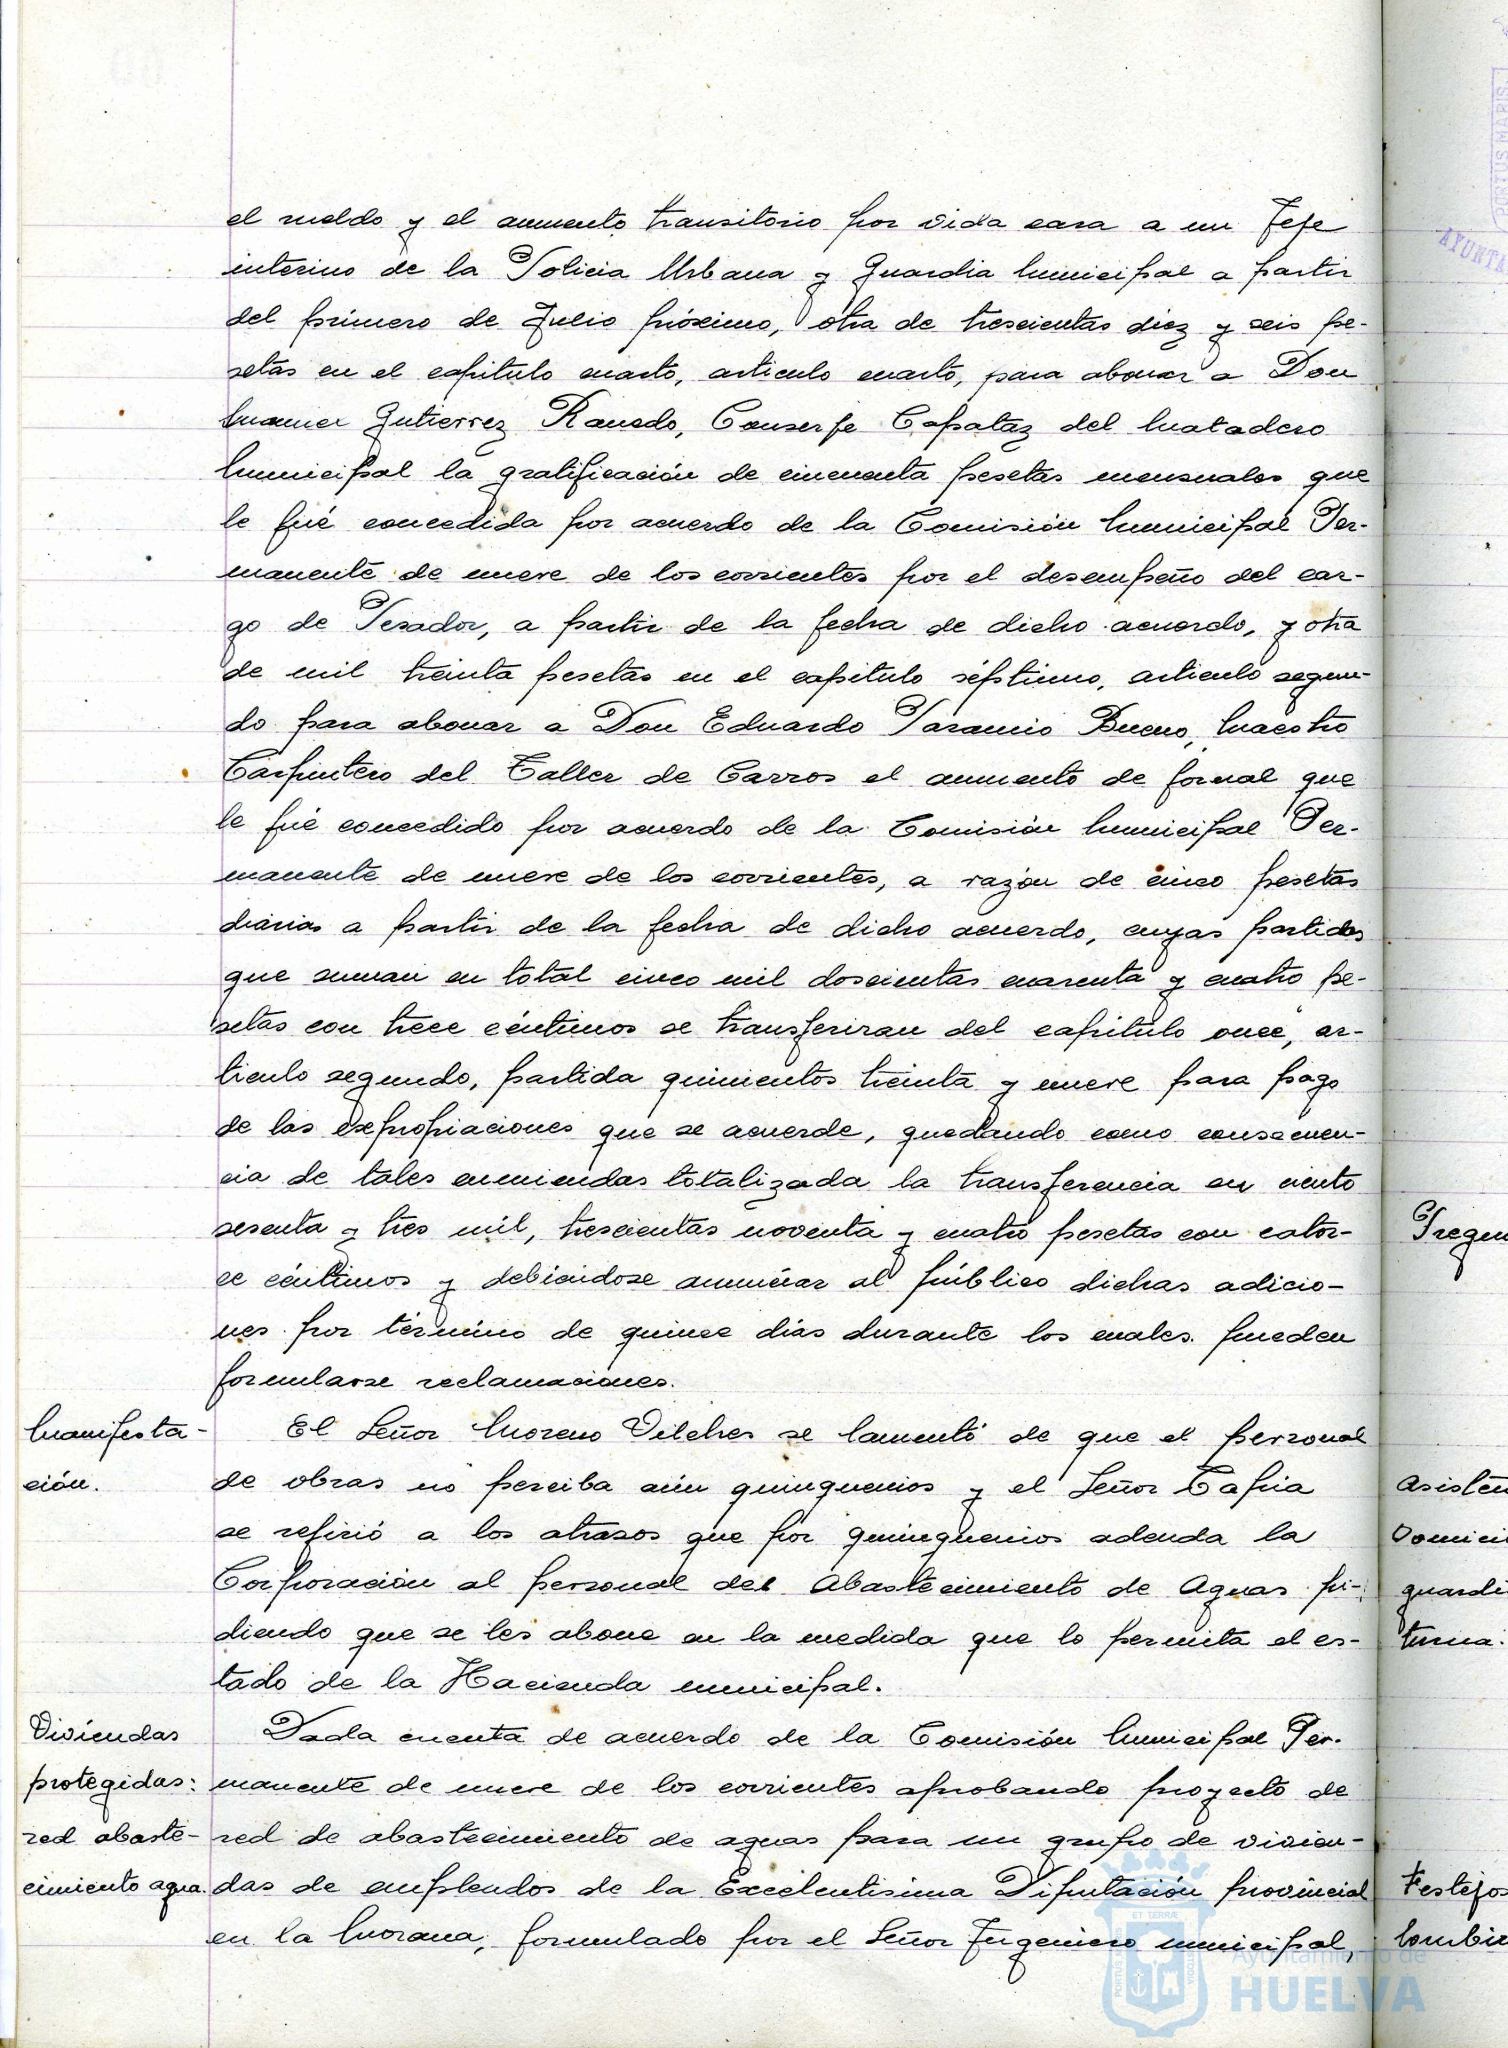 el sueldo y el aumento transitorio por vida cara a un Jefe
interino de la Policia Urbana y Guardia Municipal a partir
del primero de Julio próximo, otra de trescientas diez y seis pe-
setas en el capitulo cuarto, articulo cuarto, para abonar a Don
Manuel Gutierrez Ranedo, Conserje Capataz del Matadero
Municipal la gratificación de cincuenta pesetas mensuales que
le fué concedida por acuerdo de la Comisión Municipal Per-
manente de nueve de los corrientes por el desempeño del car-
go de Pesador, a partir de la fecha de dicho acuerdo, y otra
de mil treinta pesetas en el capitulo séptimo, articulo segun-
do para abonar a Don Eduardo Paramio Bueno, Maestro
Carpintero del Taller de Carros el aumento de jornal que
le fué concedido por acuerdo de la Comisión Municipal Per-
manente de nueve de los corrientes, a razón de cinco pesetas
diarias a partir de la fecha de dicho acuerdo, cuyas partidas
que suman en total cinco mil doscientas cuarenta y cuatro pe-
setas con trece céntimos se transferiran del capitulo once, ar-
ticulo segundo, partida quinientos treinta y nueve para pago
de las expropiaciones que se acuerde, quedando como consecuen-
cia de tales enmiendas totalizada la transferencia en ciento
sesenta y tres mil, trescientas noventa y cuatro pesetas con cator-
ce céntimos y debiéndose anunciar al público dichas adicio-
nes por término de quince dias durante los cuales pueden
formularse reclamaciones.
Manifesta-
ción.
El Señor Moreno Vilches se lamentó de que el personal
de obras no perciba aún quinquenios y el Señor Tapia
se refirió a los atrasos que por quinquenios adeuda la
Corporación al personal del Abastecimiento de Aguas pi-
diendo que se les abone en la medida que lo permita el es-
tado de la Hacienda municipal.
Viviendas
protegidas:
red abaste-
cimiento agua.
Dada cuenta de acuerdo de la Comisión Municipal Per-
manente de nueve de los corrientes aprobando proyecto de
red de abastecimiento de aguas para un grupo de vivien-
das de empleados de la Excelentisima Diputación provincial
en la Morana, formulado por el Señor Ingeniero municipal,
Pregun
Asisten
Domici
guardi
turna.
Festejos
AYUNTA
Ayuntamiento de
HUELVA